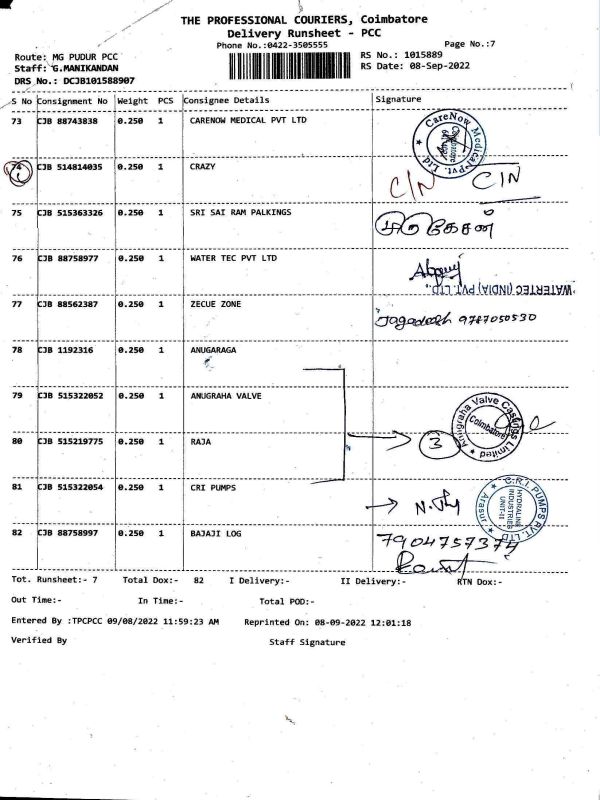 THE PROFESSIONAL COURIERS, Coimbatore
Delivery Runsheet - PCC
Phone No.:0422-3505555
Page No.:7
Route: MG PUDUR PCC
RS No.: 1015889
Staff: G.MANIKANDAN
RS Date: 08-Sep-2022
DRS No.: DCJB101588907
S No Consignment No Weight PCS Consignee Details Signature
73 CJB 88743838 0.250 1 CARENOW MEDICAL PVT LTD
CareNow Medical Pvt. Ltd
74 CJB 514814035 0.250 1 CRAZY
1 C/N C/N
75 CJB 515363326 0.250 1 SRI SAI RAM PALKINGS
76 CJB 88758977 0.250 1 WATER TEC PVT LTD
WATERTEC (INDIA) PVT. LTD.,
77 CJB 88562387 0.250 1 ZECUE ZONE
Jagadeesh 9787050530
78 CJB 1192316 0.250 1 ANUGARAGA
79 CJB 515322052 0.250 1 ANUGRAHA VALVE
Anugraha Valve Castings Limited
Coimbatore
80 CJB 515219775 0.250 1 RAJA
3
81 CJB 515322054 0.250 1 CRI PUMPS
C.R.I. PUMPS PVT. LTD
HYDRALINE
INDUSTRIES
UNIT-II
Arasur
82 CJB 88758997 0.250 1 BAJAJI LOG
7904757374
Tot. Runsheet:- 7 Total Dox:- 82 I Delivery:- II Delivery:- RTN Dox:-
Out Time:- In Time:- Total POD:-
Entered By :TPCPCC 09/08/2022 11:59:23 AM Reprinted On: 08-09-2022 12:01:18
Verified By Staff Signature